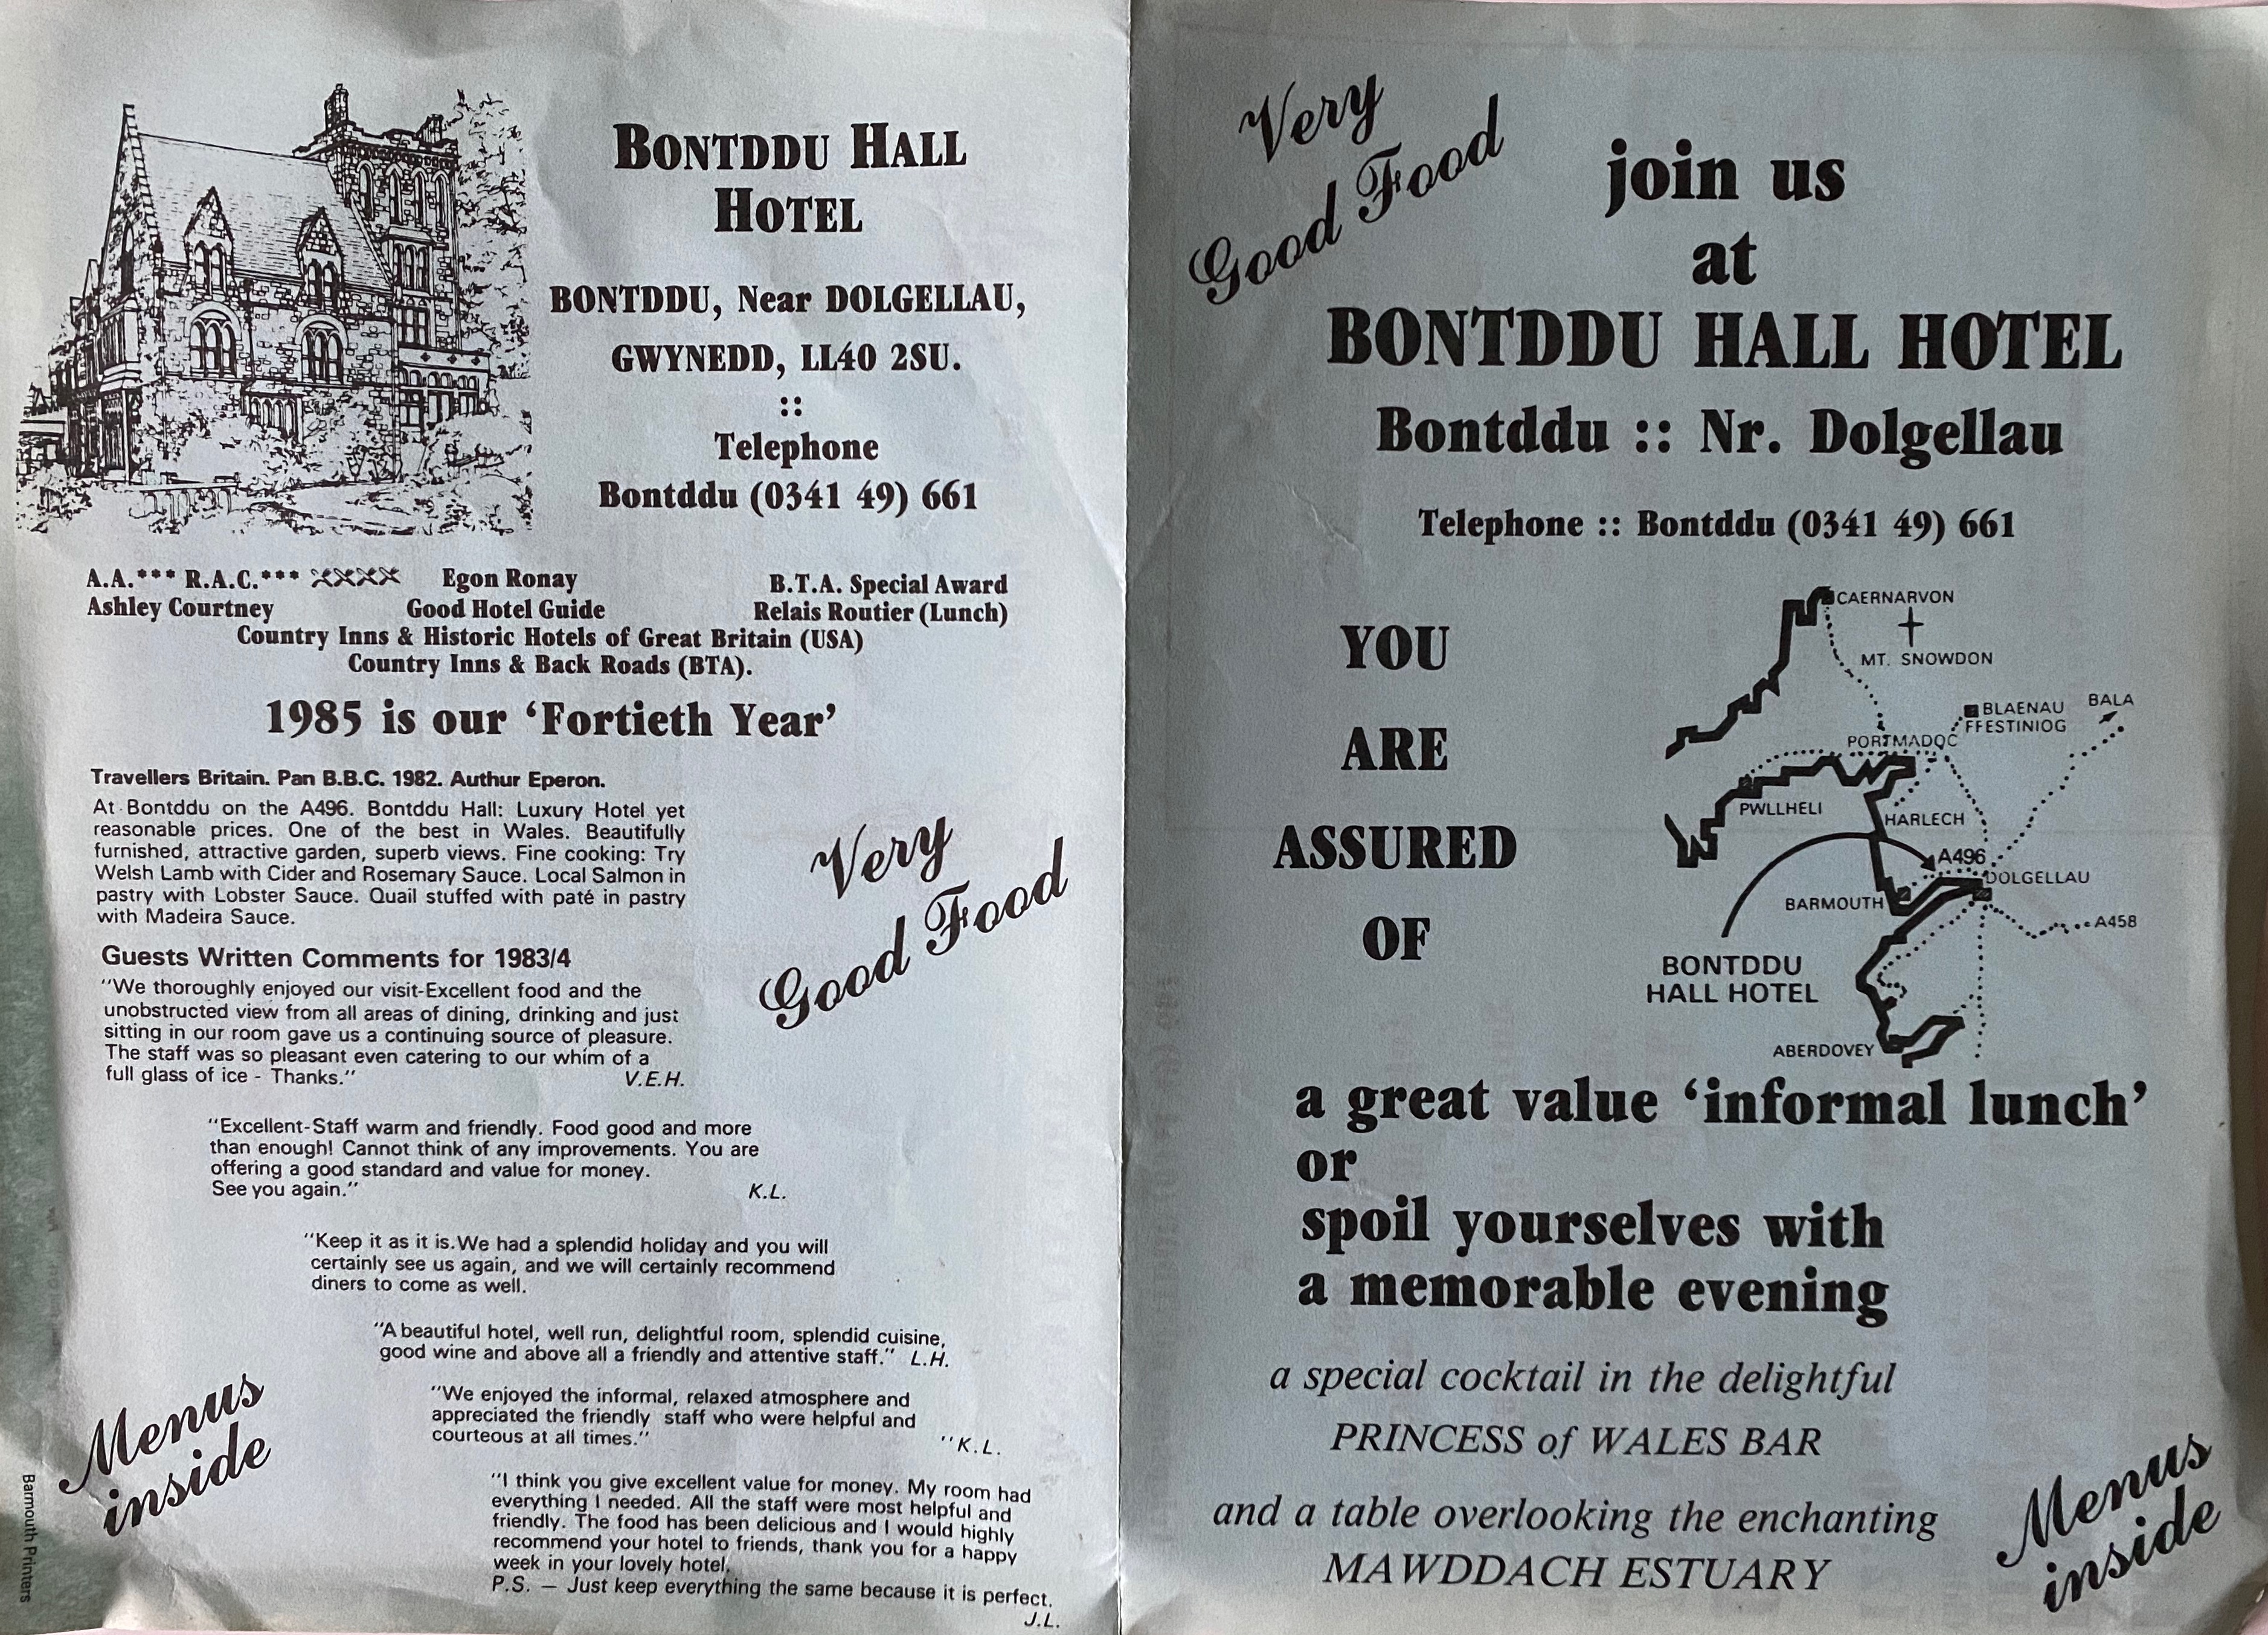 BONTDDU HALL
HOTEL
BONTDDU, Near DOLGELLAU,
GWYNEDD, LL40 2SU.
::
Telephone
Bontddu (0341 49) 661
A.A.*** R.A.C.*** Egon Ronay B.T.A. Special Award
Ashley Courtney Good Hotel Guide Relais Routier (Lunch)
Country Inns & Historic Hotels of Great Britain (USA)
Country Inns & Back Roads (BTA).
1985 is our ‘Fortieth Year’
Travellers Britain. Pan B.B.C. 1982. Authur Eperon.
At Bontddu on the A496. Bontddu Hall: Luxury Hotel yet
reasonable prices. One of the best in Wales. Beautifully
furnished, attractive garden, superb views. Fine cooking: Try
Welsh Lamb with Cider and Rosemary Sauce. Local Salmon in
pastry with Lobster Sauce. Quail stuffed with paté in pastry
with Madeira Sauce.
Very
Good Food
Guests Written Comments for 1983/4
"We thoroughly enjoyed our visit-Excellent food and the
unobstructed view from all areas of dining, drinking and just
sitting in our room gave us a continuing source of pleasure.
The staff was so pleasant even catering to our whim of a
full glass of ice - Thanks." V.E.H.
"Excellent-Staff warm and friendly. Food good and more
than enough! Cannot think of any improvements. You are
offering a good standard and value for money.
See you again." K.L.
"Keep it as it is.We had a splendid holiday and you will
certainly see us again, and we will certainly recommend
diners to come as well.
"A beautiful hotel, well run, delightful room, splendid cuisine,
good wine and above all a friendly and attentive staff." L.H.
"We enjoyed the informal, relaxed atmosphere and
appreciated the friendly staff who were helpful and
courteous at all times." "K.L.
"I think you give excellent value for money. My room had
everything I needed. All the staff were most helpful and
friendly. The food has been delicious and I would highly
recommend your hotel to friends, thank you for a happy
week in your lovely hotel.
P.S. — Just keep everything the same because it is perfect.
J.L.
Menus
inside
Barmouth Printers
Very
Good Food
join us
at
BONTDDU HALL HOTEL
Bontddu :: Nr. Dolgellau
Telephone :: Bontddu (0341 49) 661
YOU
ARE
ASSURED
OF
CAERNARVON
MT. SNOWDON
BLAENAU
FFESTINIOG
BALA
PORTMADOC
PWLLHELI
HARLECH
A496
DOLGELLAU
BARMOUTH
A458
BONTDDU
HALL HOTEL
ABERDOVEY
a great value ‘informal lunch’
or
spoil yourselves with
a memorable evening
a special cocktail in the delightful
PRINCESS of WALES BAR
and a table overlooking the enchanting
MAWDDACH ESTUARY
Menus
inside